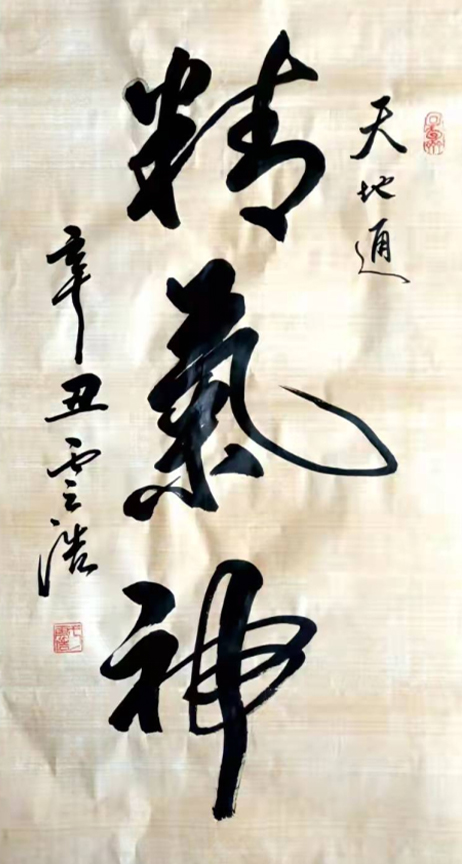 天地通
精氣神
辛丑雲浩